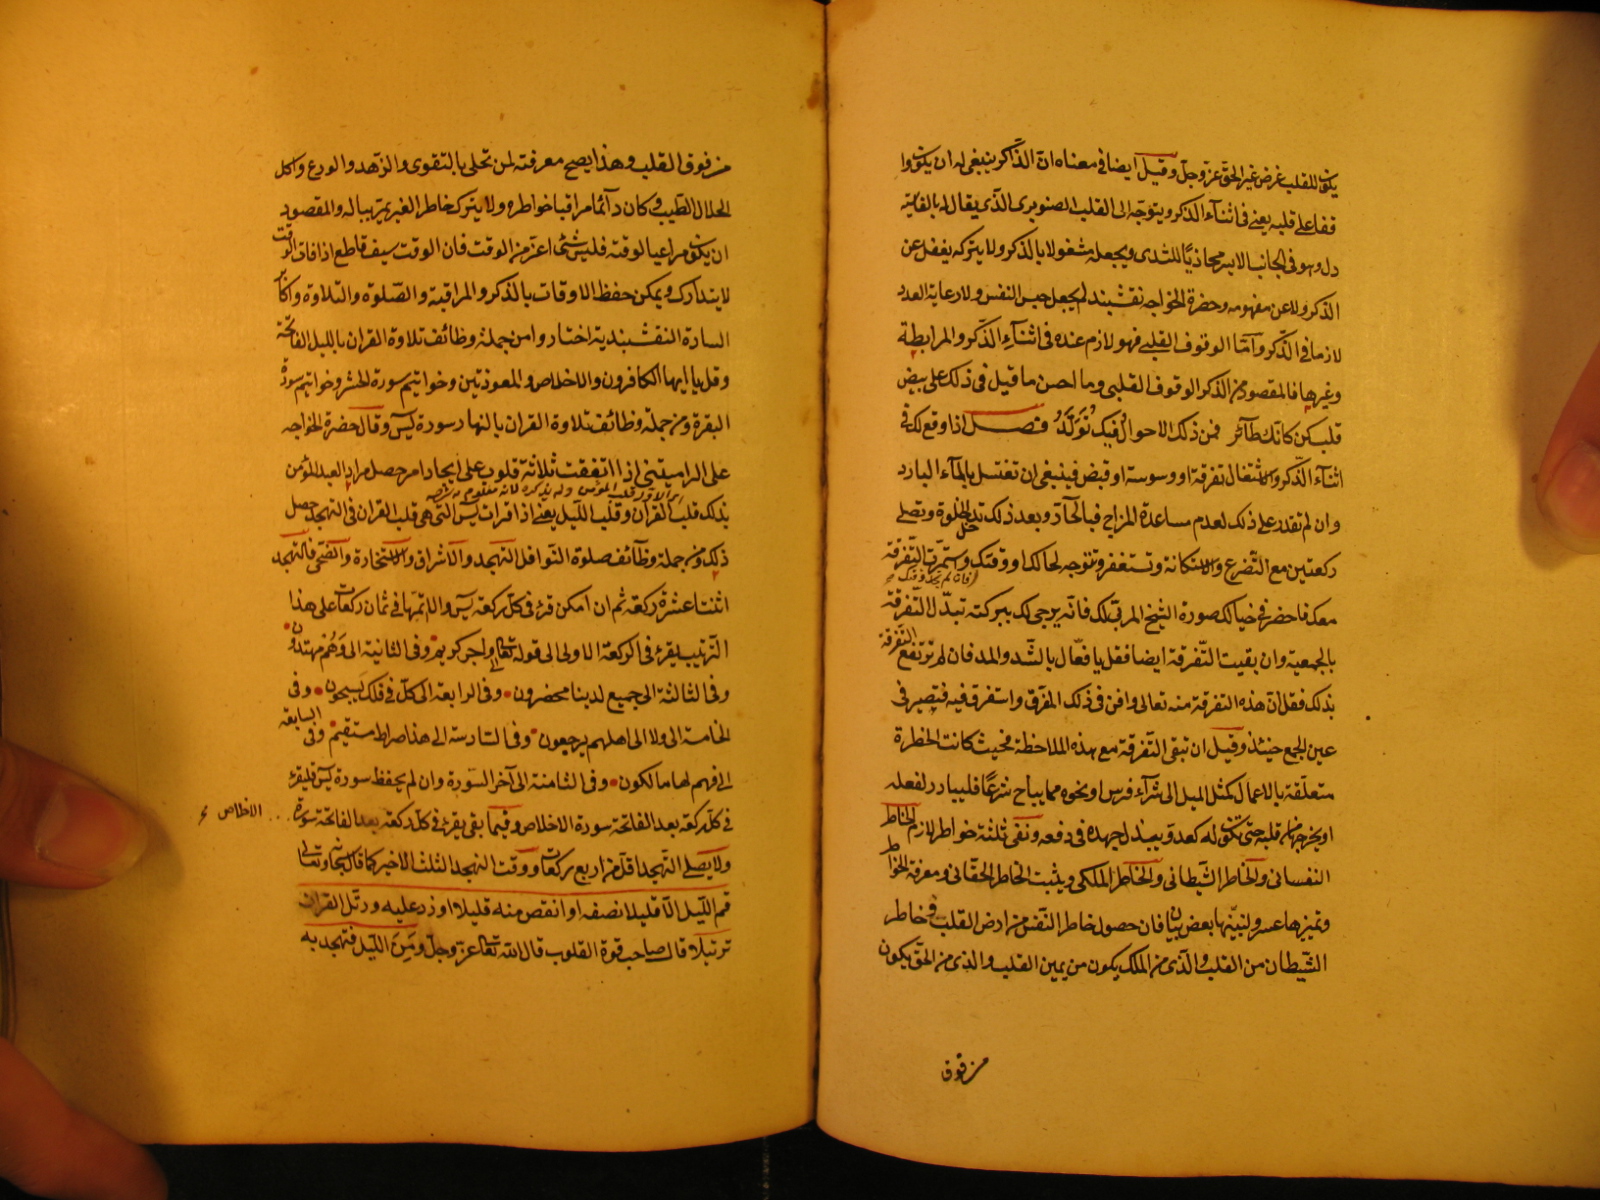 يكون للقلب غرض غير الحق عز وجل وقيل ايضا في معناه ان الذاكر ينبغي له ان يكون وا
قفا على قلبه يعني في اثناء الذكر ويتوجه الى القلب الصنوبري الذي يقال له بالفارسية
دل وهو في الجانب الايسر محاذيا للثدي ويجعله مشغولا بالذكر ولا يتركه يغفل عن
الذكر ولا عن مفهومه وحضرة الخواجه نقشبند لم يجعل حبس النفس ولا رعاية العدد
لازما في الذكر واما الوقوف القلبي فهو لازم عنده في اثناء الذكر والمرابطة
وغيرها فالمقصود من الذكر الوقوف القلبي وما احسن ما قيل في ذلك على بيض
قلبك كن كانك طائر فمن ذلك الاحوال فيك تولد فصل اذا وقع لك في
اثناء الذكر والاشتغال تفرقة او وسوسة او قبض فينبغي ان تغتسل بالماء البارد
وان لم تقدر على ذلك لعدم مساعدة المزاج فبالحار وبعد ذلك تدخل الخلوة وتصلي
ركعتين مع التضرع والاستكانة وتستغفر وتتوجه لحالك او وقتك واستمرت التفرقة
معك فاحضر في خيالك صورة الشيخ المربي لك فانه يرجى لك ببركته تبدل التفرقة
بالجمعية وان بقيت التفرقة ايضا فقل يا فعال بالشد والمد فان لم ترتفع التفرقة
بذلك فقل ان هذه التفرقة منه تعالى وافن في ذلك المفرق واستغرق فيه فتصير في
عين الجمع حينئذ وقيل ان تبقى التفرقة مع هذه الملاحظة فحيث كانت الخطرة
متعلقة بالاعمال كمثل الميل الى شراء فرس او نحوه مما يباح شرعا فليبادر لفعله
او يخرجها من قلبه حتى تكون له كعدو ويبذل جهده في دفعه ونفي ثلثة خواطر لازم الخاطر
النفساني والخاطر الشيطاني والخاطر الملكي ويثبت الخاطر الحقاني ومعرفة الخواطر
وتميزها عسر ولنبينها بعض بيان فان حصول خاطر النفس من ارض القلب وخاطر
الشيطان من القلب والذي من الملك يكون من يمين القلب والذي من الحق يكون
من فوق
من فوق القلب وهذا يصح معرفته لمن تحلى بالتقوى والزهد والورع واكل
الحلال الطيب وكان دائما مراقبا خواطره ولا يترك خاطر الغير يمر بباله والمقصود
ان يكون مراعيا لوقته فليس شئ اعز من الوقت فان الوقت سيف قاطع اذا فات الوقت
لا يتدارك ويمكن حفظ الاوقات بالذكر والمراقبة والصلوة والتلاوة واكابر
السادة النقشبندية اختاروا من جملة وظائف تلاوة القران بالليل الفاتحة
وقل يا ايها الكافرون والاخلاص والمعوذتين وخواتيم سورة الحشر وخواتيم سورة
البقرة ومن جملة وظائف تلاوة القران بالنهار سورة يس وقال حضرة الخواجه
على الراميتني اذا اتفقت ثلاثة قلوب على ايجاد امر حصل مراد العبد المؤمن
بذلك قلب القران وقلب الليل يعني اذا قرات يس التي هي قلب القران في التهجد حصل
ذلك ومن جملة وظائف صلوة النوافل التهجد والاشراق والاستخارة والضحى فالتهجد
اثنتا عشرة ركعة ثم ان امكن قرئ في كل ركعة يس والا تمها في ثمان ركعات على هذا
الترتيب يقرئ في الركعة الاولى الى قوله تعالى واجر كريم وفي الثانية الى وهم مهتدون
وفي الثالثة الى جميع لدينا محضرون وفي الرابعة الى كل في فلك يسبحون وفي
الخامسة الى ولا الى اهلهم يرجعون وفي السادسة الى هذا صراط مستقيم وفي السابعة
الى فهم لها مالكون وفي الثامنة الى آخر السورة وان لم يحفظ سورة يس فليقرئ
في كل ركعة بعد الفاتحة سورة الاخلاص وفيما بقى يقرئ في كل ركعة بعد الفاتحة سورة
الاخلاص
ولا يصلي التهجد اقل من اربع ركعات ووقت التهجد الثلث الاخير كما قال سبحانه وتعالى
قم الليل الا قليلا نصفه او انقص منه قليلا او زد عليه ورتل القران
ترتيلا قال صاحب قوة القلوب قال الله تعالى عز وجل ومن الليل فتهجد به